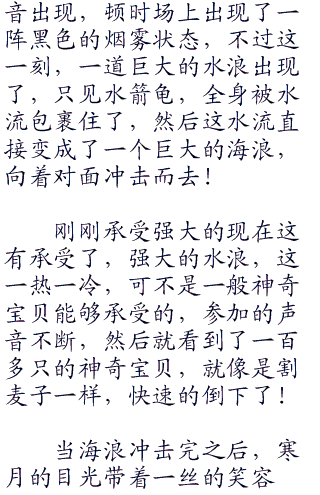 音出现，顿时场上出现了一
阵黑色的烟雾状态，不过这
一刻，一道巨大的水浪出现
了，只见水箭龟，全身被水
流包裹住了，然后这水流直
接变成了一个巨大的海浪，
向着对面冲击而去！
刚刚承受强大的现在这
有承受了，强大的水浪，这
一热一冷，可不是一般神奇
宝贝能够承受的，参加的声
音不断，然后就看到了一百
多只的神奇宝贝，就像是割
麦子一样，快速的倒下了！
当海浪冲击完之后，寒
月的目光带着一丝的笑容